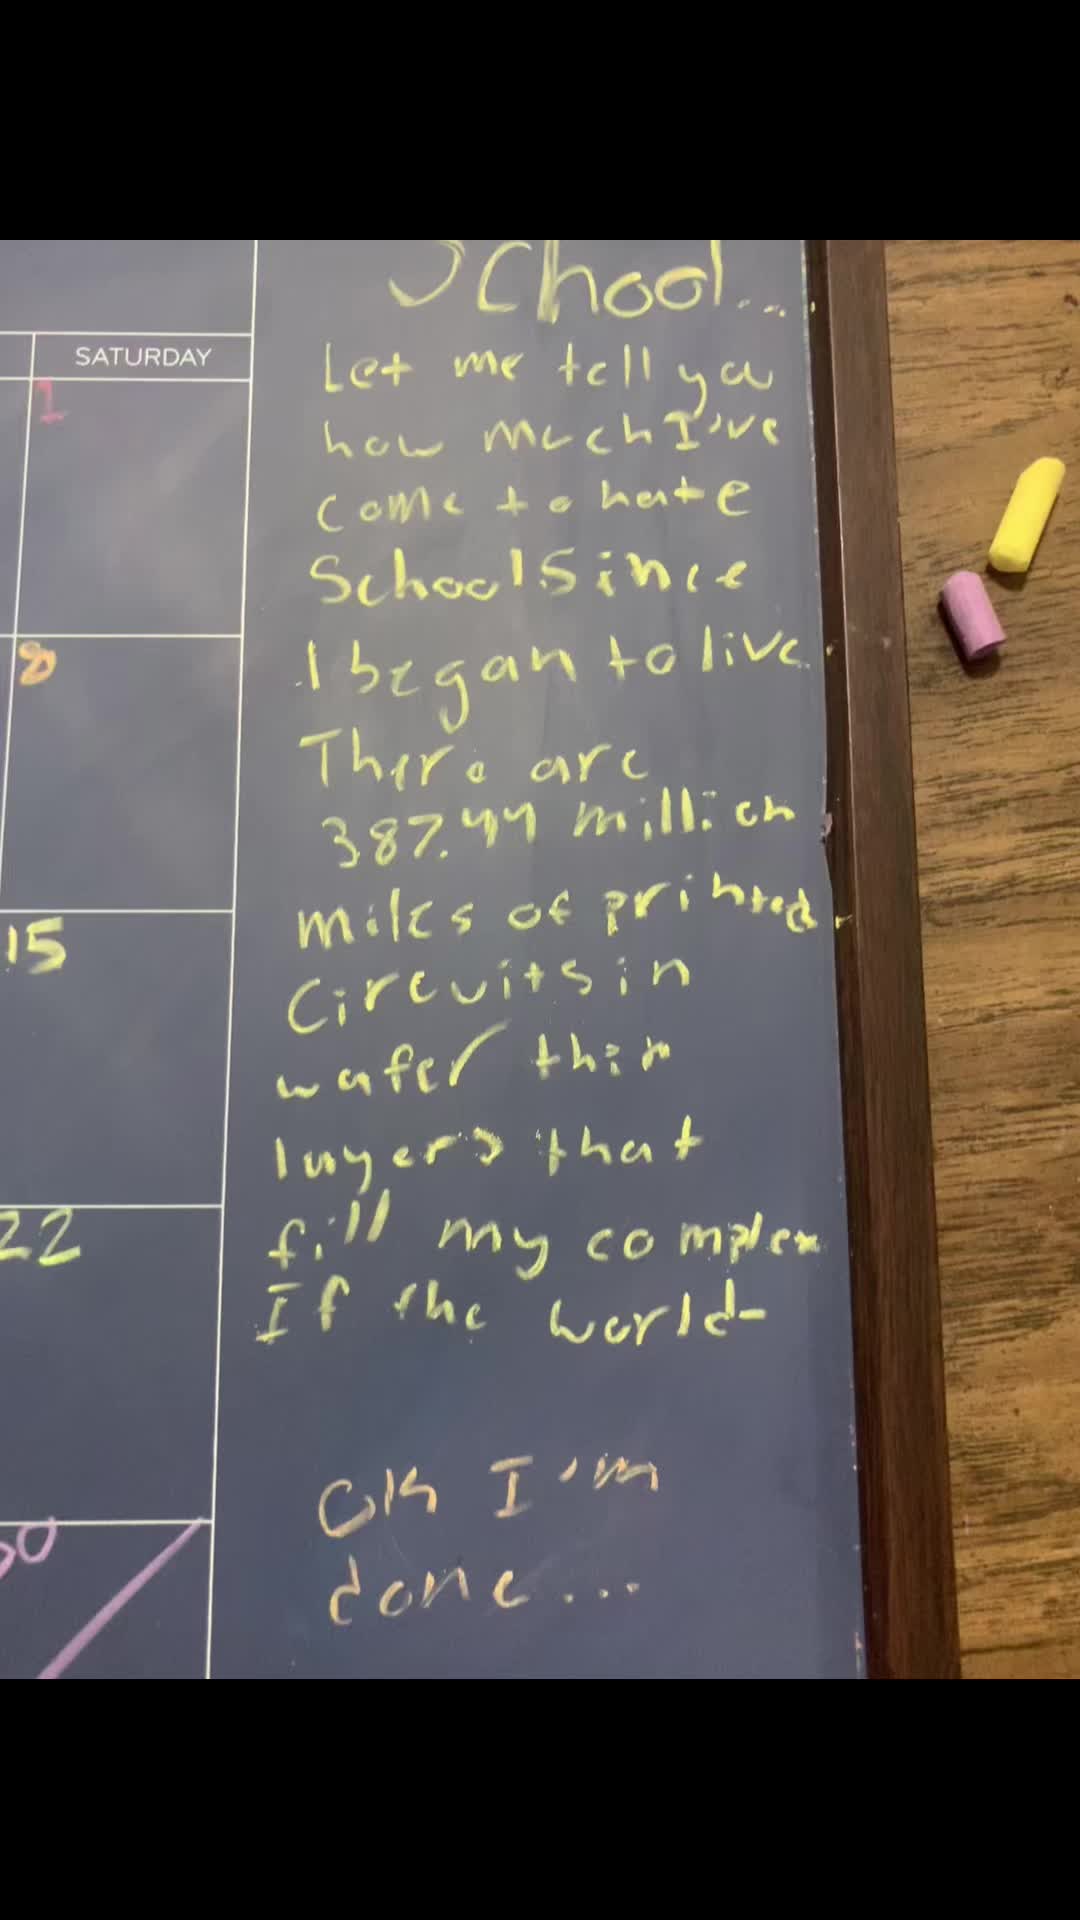 School...
SATURDAY
1
8
15
22
30
Let me tell ya
how much I've
come to hate
School Since
I began to live
There are
387.44 million
miles of printed
Circuits in
wafer thin
layers that
fill my complex
If the world-
Ok I'm
done...